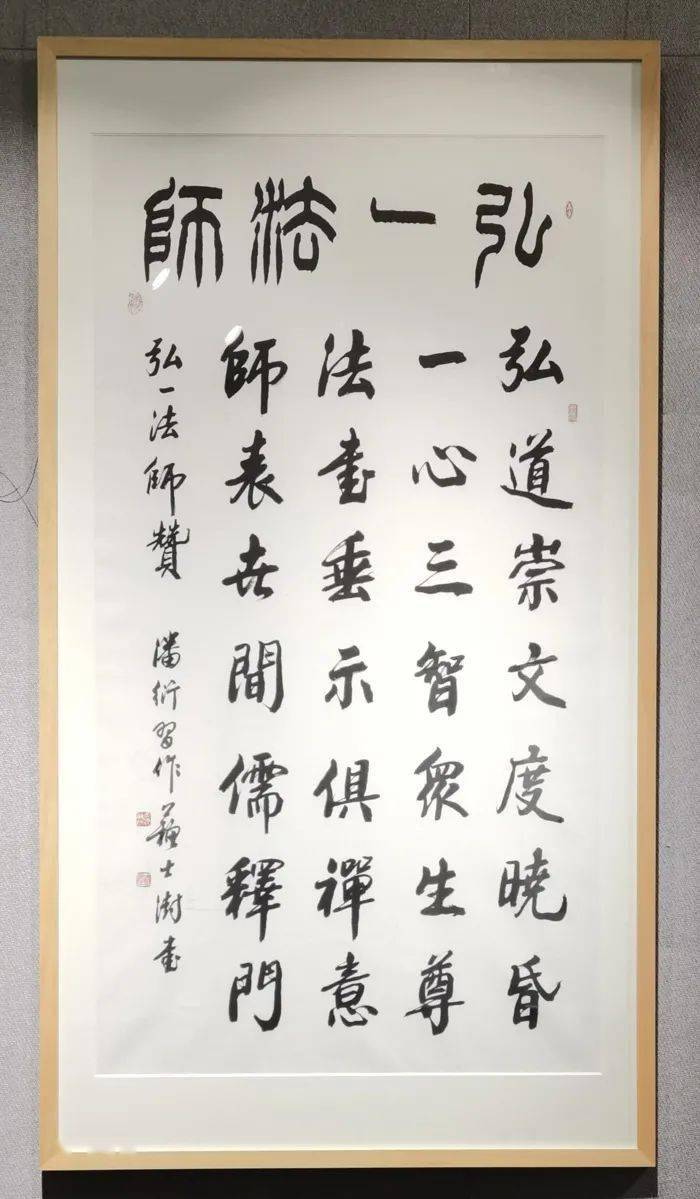 弘一法師
弘道崇文度曉昏
一心三智眾生尊
法書垂示俱禪意
師表世間儒釋門
弘一法師贊 潘衍習作 蘇士澍書